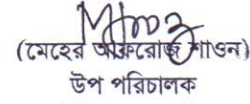 (মেহের আফরোজ শাওন)
উপ পরিচালক